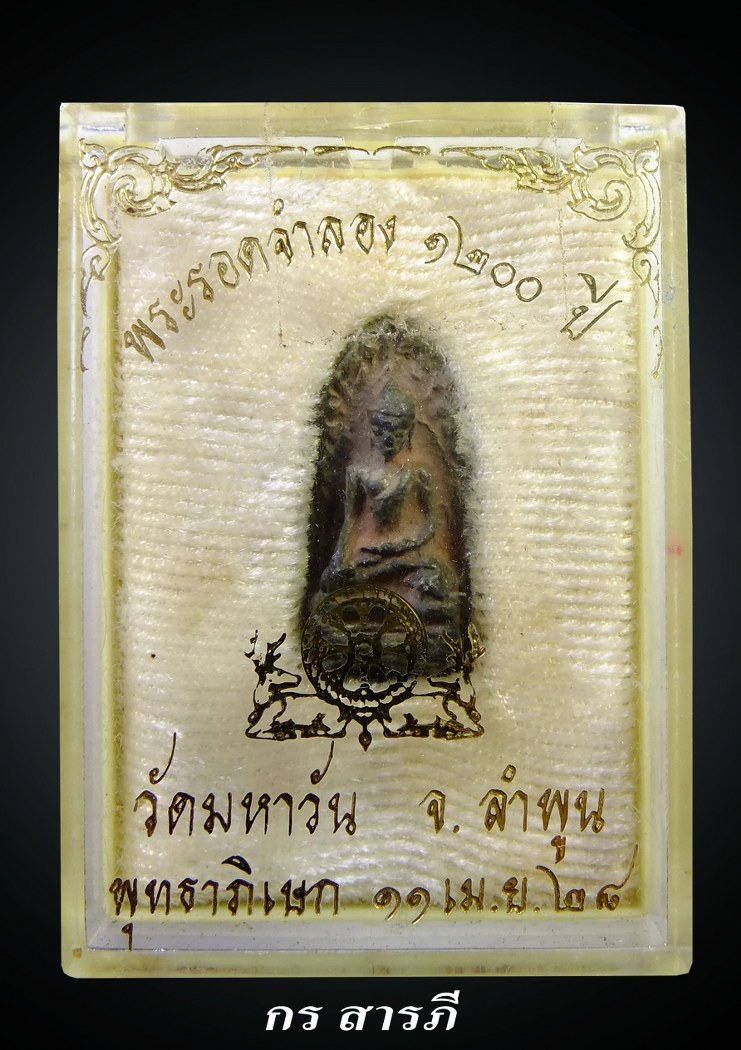 พระรอดจำลอง ๑๒๐๐ ปี
วัดมหาวัน จ. ลำพูน
พุทธาภิเษก ๑๑ เม.ย. ๒๘
กร สารภี